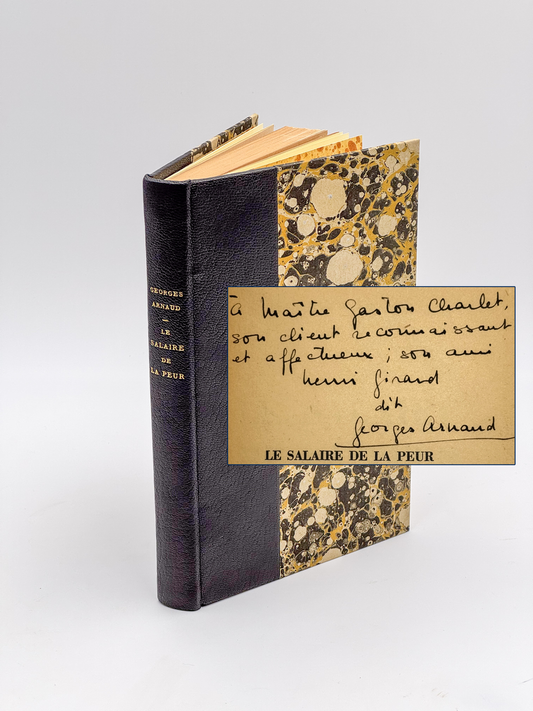 GEORGES
ARNAUD
—
LE
SALAIRE
DE
LA PEUR
à Maître Gaston Charlet,
son client reconnaissant
et affectueux ; son ami
henri Girard
dit
Georges Arnaud
LE SALAIRE DE LA PEUR